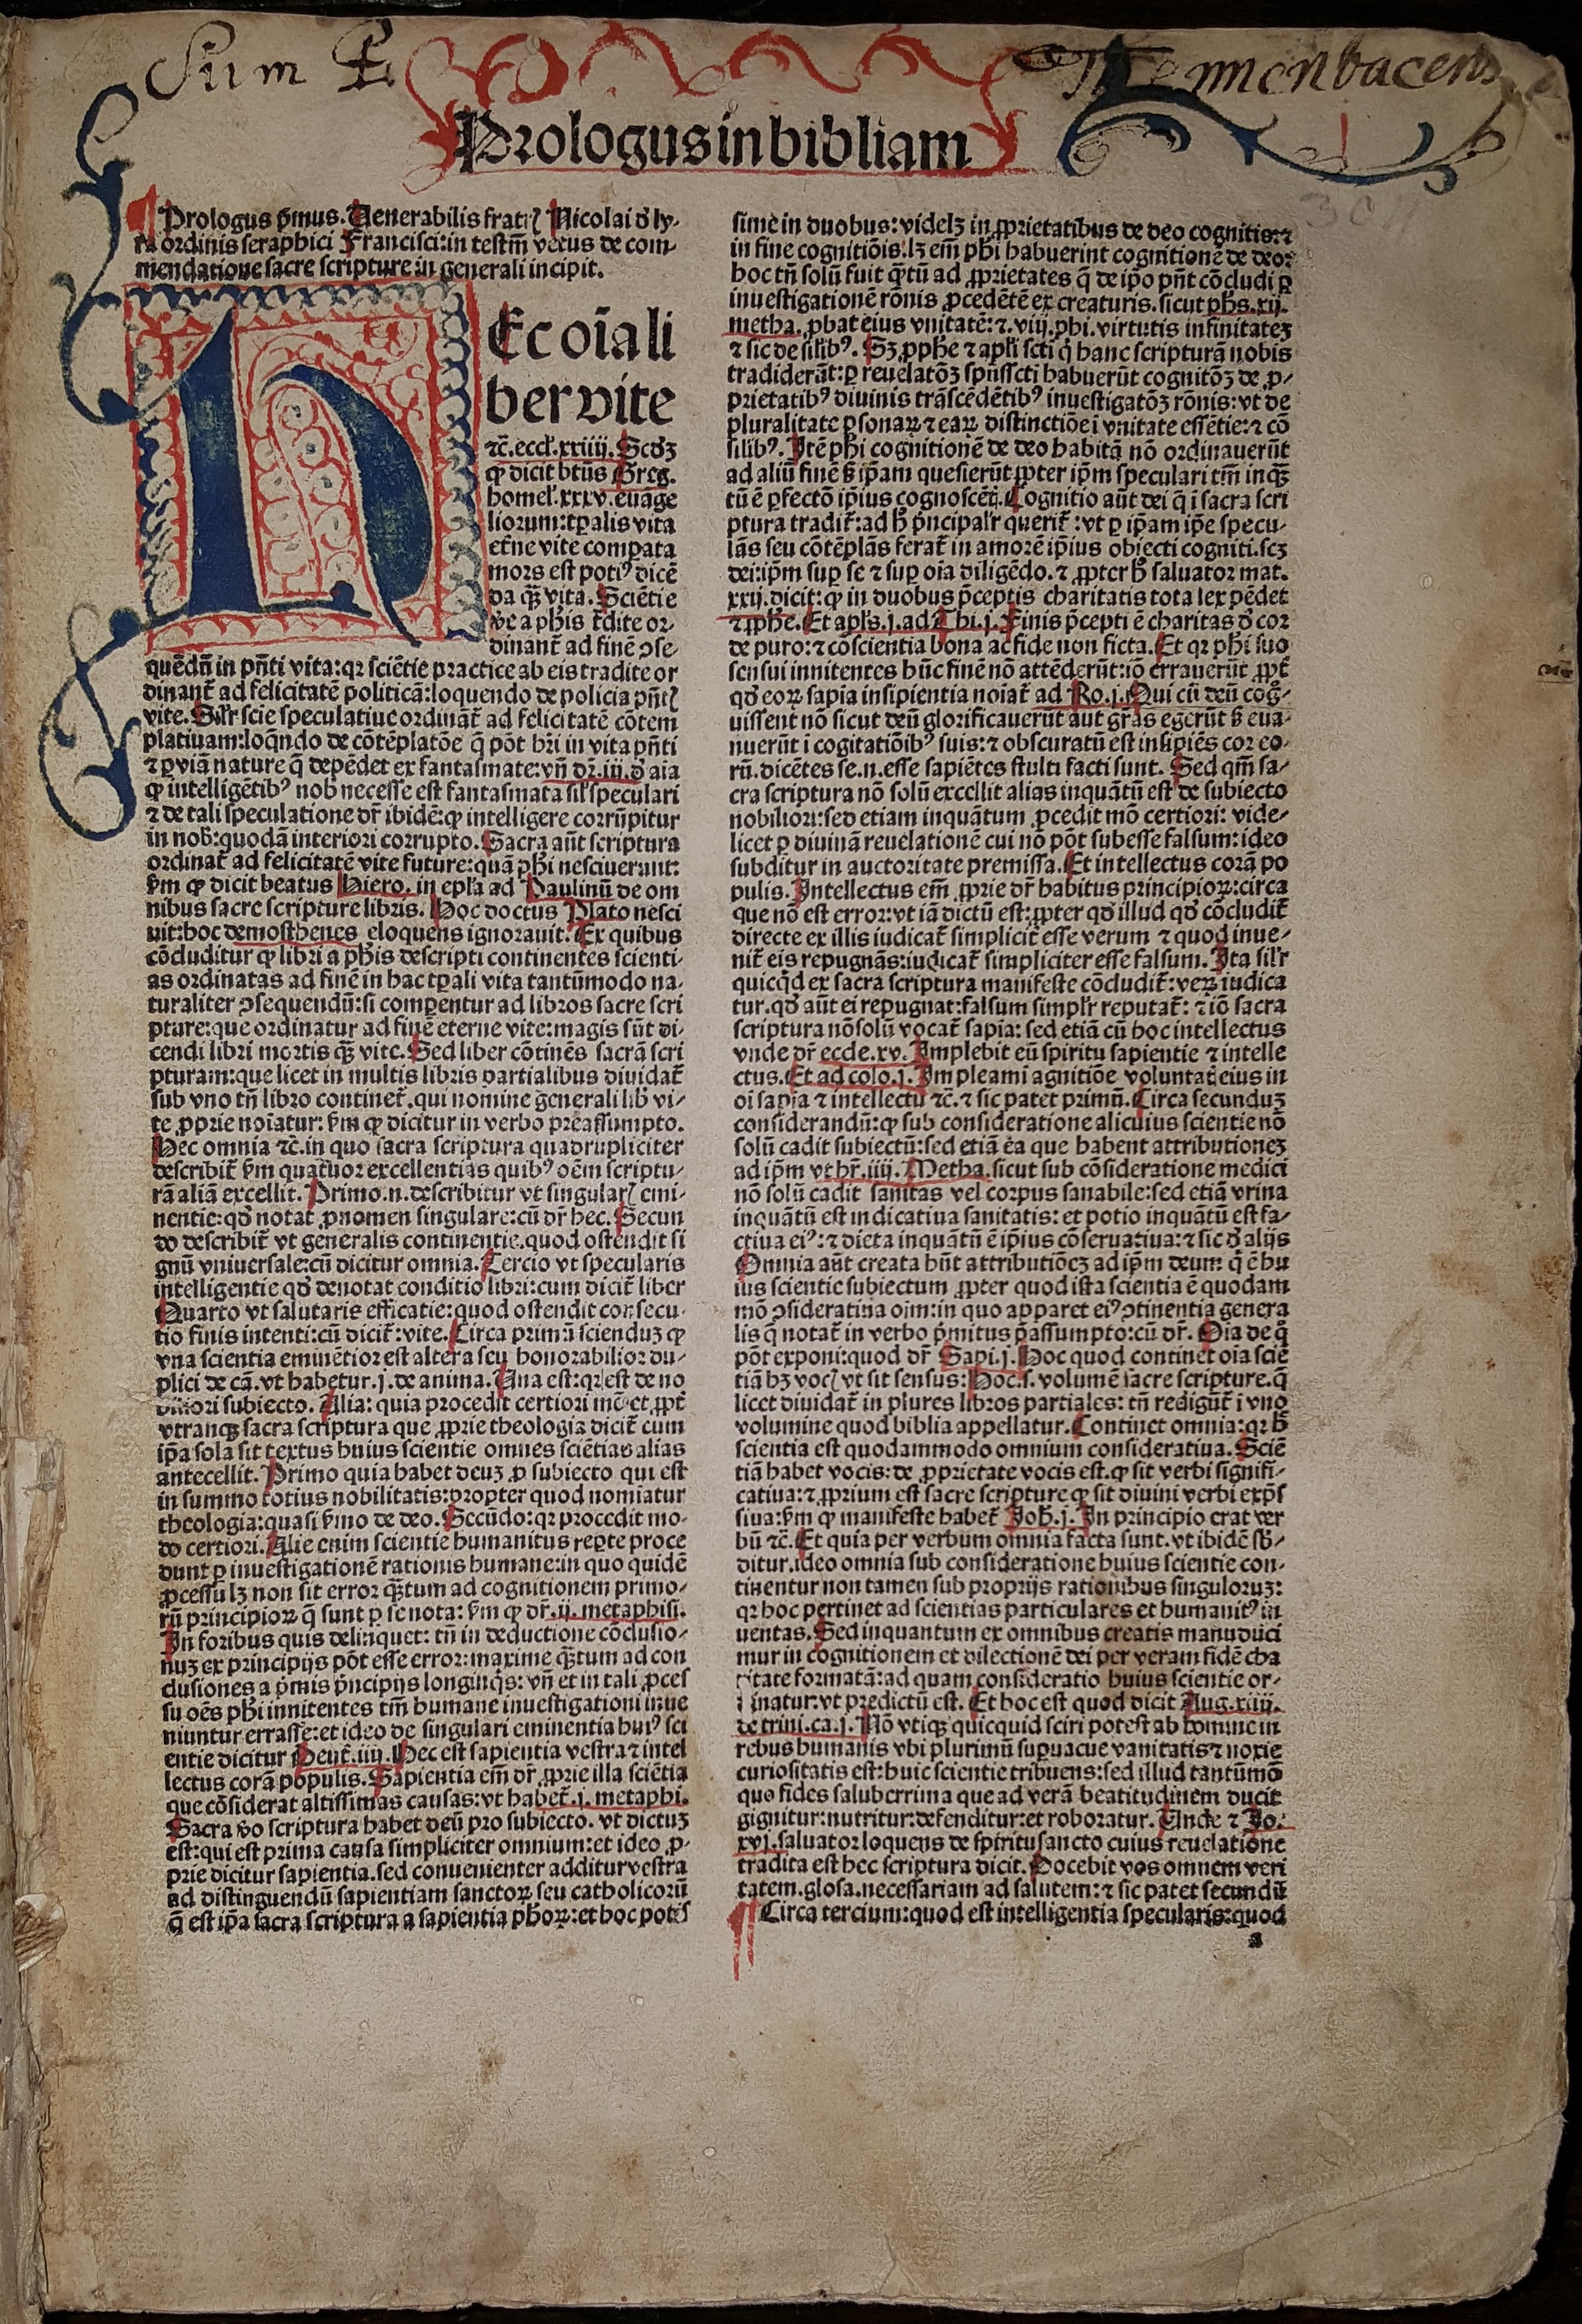 Sum F
Memmenbacensis
Prologus in bibliam
¶ Prologus p̄mus. Venerabilis fratrꝭ Nicolai d̓ ly-
ra ordinis seraphici Francisci: in testm̄ vetus de com-
mendatione sacre scripture in generali incipit.
HEc oīa li
ber vite
⁊c̄. eccl̓. xxiiij. Scd̓ꝫ
ꝙ dicit btūs Greg.
homel̓. xxxv. euāge
liorum: tꝑalis vita
et̄ne vite comꝑata
mors est potiꝰ dicē
da qꝫ̄ vita. Sciētie
v̓e a ph̓is t̄dite or-
dinant̄ ad finē ꝯse-
quēdū in pn̄ti vita: qꝛ sciētie practice ab eis tradite or
dinant̄ ad felicitatē politicā: loquendo de policia pn̄tꝭ
vite. Sil̓r scīe speculatiue ordinat̄ ad felicitatē cōtem
platiuam: loq̄ndo de cōtēplatōe q̄ pōt h̓ri in vita pn̄ti
⁊ ꝑ viā nature q̄ depēdet ex fantasmate: vn̄ dr̄. iij. d̓ aīa
ꝙ intelligētibꝰ nob̓ necesse est fantasmata sil̓ speculari
⁊ de tali speculatione dr̄ ibidē: ꝙ intelligere corrūpitur
in nob̓: quodā interiori corrupto. Sacra aūt scriptura
ordinat̄ ad felicitatē vite future: quā ph̓i nesciuerunt:
s̓m ꝙ dicit beatus Hiero. in epl̓a ad Paulinū de om
nibus sacre scripture libris. Hoc doctus Plato nesci
uit: hoc demosthenes eloquens ignorauit. Ex quibus
cōcluditur ꝙ libri a ph̓is descripti continentes scienti-
as ordinatas ad finē in hac tꝑali vita tantūmodo na-
turaliter ꝯsequendū: si comꝑentur ad libros sacre scri
pture: que ordinatur ad finē eterne vite: magis sūt di-
cendi libri mortis qꝫ̄ vite. Sed liber cōtinēs sacrā scri
pturam: que licet in multis libris partialibus diuidat̄
sub vno tn̄ libro continet̄. qui nomine generali lib̓ vi-
te ꝓprie noīatur: s̓m ꝙ dicitur in verbo preassumpto.
Hec omnia ⁊c̄. in quo sacra scriptura quadrupliciter
describit̄ s̓m quatuor excellentias quibꝰ oēm scriptu-
rā aliā excellit. Primo. n. describitur vt singularꝭ emi-
nentie: qd̓ notat ꝓnomen singulare: cū dr̄ hec. Secun
do describit̄ vt generalis continentie. quod ostendit si
gnū vniuersale: cū dicitur omnia. Tercio vt specularis
intelligentie qd̓ denotat conditio libri: cum dicit̄ liber
Quarto vt salutaris efficatie: quod ostendit consecu-
tio finis intenti: cū dicit̄: vite. Circa primū scienduꝫ ꝙ
vna scientia eminētior est altera seu honorabilior du-
plici de cā. vt habetur. j. de anima. Vna est: qꝛ est de no
biliori subiecto. Alia: quia procedit certiori mō et ꝓpt̄
vtranqꝫ sacra scriptura que ꝓprie theologia dicit̄ cum
ip̄a sola sit textus huius scientie omnes sciētias alias
antecellit. Primo quia habet deuꝫ ꝓ subiecto qui est
in summo totius nobilitatis: propter quod nomiatur
theologia: quasi s̓mo de deo. Secūdo: qꝛ procedit mo-
do certiori. Alie enim scientie humanitus reꝑte proce
dunt ꝑ inuestigationē rationis humane: in quo quidē
ꝓcessu lꝫ non sit error qꝫ̄tum ad cognitionem primo-
rū principioꝝ q̄ sunt ꝑ se nota: s̓m ꝙ dr̄. ij. metaphisi.
In foribus quis delinquet: tn̄ in deductione cōclusio-
nuꝫ ex principijs pōt esse error: maxime qꝫ̄tum ad con
clusiones a p̄mis p̄ncipijs longinq̄s: vn̄ et in tali ꝓces
su oēs ph̓i innitentes tm̄ humane inuestigationi inue
niuntur errasse: et ideo de singulari eminentia huiꝰ sci
entie dicitur Deut̄. iiij. Hec est sapientia vestra ⁊ intel
lectus corā populis. Sapientia em̄ dr̄ ꝓprie illa sciētia
que cōsiderat altissimas causas: vt habet̄. j. metaphi.
Sacra v̓o scriptura habet deū pro subiecto. vt dictuꝫ
est: qui est prima causa simpliciter omnium: et ideo ꝓ-
prie dicitur sapientia. sed conuenienter additur vestra
ad distinguendū sapientiam sanctoꝝ seu catholicorū
q̄ est ip̄a sacra scriptura a sapientia ph̓oꝝ: et hoc potis
sime in duobus: videlꝫ in ꝓprietatibus de deo cognitis: ⁊
in fine cognitiōis. lꝫ em̄ ph̓i habuerint cognitionē de deo:
hoc tn̄ solū fuit q̄ꝫtū ad ꝓprietates q̄ de ip̄o pn̄t cōcludi ꝑ
inuestigationē rōnis ꝓcedētē ex creaturis. sicut ph̓s. xij.
metha. ꝓbat eius vnitatē: ⁊. viij. phi. virtutis infinitateꝫ
⁊ sic de sil̓ibꝰ. Sꝫ ꝓph̓e ⁊ apl̓i scti q̓ hanc scripturā nobis
tradiderūt: ꝑ reuelatōꝫ spūsscti habuerūt cognitōꝫ de ꝓ-
prietatibꝰ diuinis trāscēdētibꝰ inuestigatōꝫ rōnis: vt de
pluralitate ꝑsonaꝝ ⁊ eaꝝ distinctiōe ī vnitate essētie: ⁊ cō
silibꝰ. Itē ph̓i cognitionē de deo habitā nō ordinauerūt
ad aliū finē s̓ ip̄am quesierūt ꝓpter ip̄m speculari tm̄ inqꝫ̄
tū ē ꝑfectō ip̄ius cognoscētꝭ. Cognitio aūt dei q̄ ī sacra scri
ptura tradit̄: ad h̓ p̄ncipal̓r querit̄: vt ꝑ ip̄am ip̄e specu-
lās seu cōtēplās ferat̄ in amorē ip̄ius obiecti cogniti. scꝫ
dei: ip̄m suꝑ se ⁊ suꝑ oīa diligēdo. ⁊ ꝓpter h̓ saluator mat.
xxij. dicit: ꝙ in duobus p̄ceptis charitatis tota lex pēdet
⁊ ꝓph̓e. Et apl̓s. j. ad Thi. j. Finis p̄cepti ē charitas d̓ cor
de puro: ⁊ cōscientia bona ac fide non ficta. Et qꝛ ph̓i suo
sensui innitentes hūc finē nō attēderūt: iō errauerūt ꝓpt̄
qd̓ eoꝝ sapīa insipientia noīat̄ ad Ro. j. Qui cū deū cog-
uissent nō sicut deū glorificauerūt aut gr̄as egerūt s̓ eua-
nuerūt ī cogitatiōibꝰ suis: ⁊ obscuratū est insipiēs cor eo-
rū. dicētes se. n. esse sapiētes stulti facti sunt. Sed qm̄ sa-
cra scriptura nō solū excellit alias inquātū est de subiecto
nobiliori: sed etiam inquātum ꝓcedit mō certiori: vide-
licet ꝑ diuinā reuelationē cui nō pōt subesse falsum: ideo
subditur in auctoritate premissa. Et intellectus corā po
pulis. Intellectus em̄ ꝓprie dr̄ habitus principioꝝ: circa
que nō est error: vt iā dictū est: ꝓpter qd̓ illud qd̓ cōcludit̄
directe ex illis iudicat̄ simplicit̄ esse verum ⁊ quod inue-
nit̄ eis repugnās: iudicat̄ simpliciter esse falsum. Ita sil̓r
quicq̄d ex sacra scriptura manifeste cōcludit̄: veꝝ iudica
tur. qd̓ aūt ei repugnat: falsum simpl̓r reputat̄: ⁊ iō sacra
scriptura nō solū vocat̄ sapīa: sed etiā cū hoc intellectus
vnde dr̄ eccle. xv. Implebit eū spiritu sapientie ⁊ intelle
ctus. Et ad colo. j. Impleamī agnitiōe voluntatꝭ eius in
oī sapīa ⁊ intellectu ⁊c̄. ⁊ sic patet primū. Circa secunduꝫ
considerandū: ꝙ sub consideratione alicuius scientie nō
solū cadit subiectū: sed etiā ea que habent attributioneꝫ
ad ip̄m vt hr̄. iiij. Metha. sicut sub cōsideratione medici
nō solū cadit sanitas vel corpus sanabile: sed etiā vrina
inquātū est indicatiua sanitatis: et potio inquātū est fa-
ctiua eiꝰ: ⁊ dieta inquātū ē ip̄ius cōseruatiua: ⁊ sic d̓ alijs
Omnia aūt creata hn̄t attributiōeꝫ ad ip̄m deum: q̓ ē hu
ius scientie subiectum ꝓpter quod ista scientia ē quodam
mō ꝯsideratiua oīm: in quo apparet eiꝰ ꝯtinentia genera
lis q̄ notat̄ in verbo p̄mitus p̄assumpto: cū dr̄. Oīa de q̓
pōt exponi: quod dr̄ Sapi. j. Hoc quod continet oīa sciē
tiā hꝫ vocꝭ vt sit sensus: Hoc. s. volumē sacre scripture. q̄
licet diuidat̄ in plures libros partiales: tn̄ redigūt̄ ī vno
volumine quod biblia appellatur. Continet omnia: qꝛ h̓
scientia est quodammodo omnium consideratiua. Sciē
tiā habet vocis: de ꝓprietate vocis est. ꝙ sit verbi signifi-
catiua: ⁊ ꝓprium est sacre scripture ꝙ sit diuini verbi exp̄s
siua: s̓m ꝙ manifeste habet̄ Joh̓. j. In principio erat ver
bū ⁊c̄. Et quia per verbum omnia facta sunt. vt ibidē sb̓-
ditur. ideo omnia sub consideratione huius scientie con-
tinentur non tamen sub proprijs rationibus singuloruꝫ:
qꝛ hoc pertinet ad scientias particulares et humanitꝰ in
uentas. Sed inquantum ex omnibus creatis manuduci
mur in cognitionem et dilectionē dei per veram fidē cha
ritate formatā: ad quam consideratio huius scientie or-
dinatur: vt predictū est. Et hoc est quod dicit Aug. xiiij.
de trini. ca. j. Nō vtiqꝫ quicquid sciri potest ab homine in
rebus humanis vbi plurimū suꝑuacue vanitatis ⁊ noxie
curiositatis est: huic scientie tribuens: sed illud tantūmō
quo fides saluberrima que ad verā beatitudinem ducit
gignitur: nutritur: defenditur: et roboratur. Vnde ⁊ Jo.
xvj. saluator loquens de spiritusancto cuius reuelatione
tradita est hec scriptura dicit. Docebit vos omnem veri
tatem. glosa. necessariam ad salutem: ⁊ sic patet secundū
¶ Circa tercium: quod est intelligentia specularis: quod
a